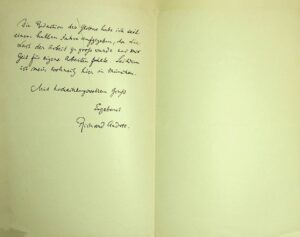 Die Redaktion des Globus habe ich seit
einem halben Jahre aufgegeben, da die
Last der Arbeit zu groß wurde und mir
Zeit für eigene Arbeiten fehlte. Seitdem
ist mein Wohnsitz hier in München
Mit hochachtungsvollem Gruß
Ergebenst
Richard Andree.